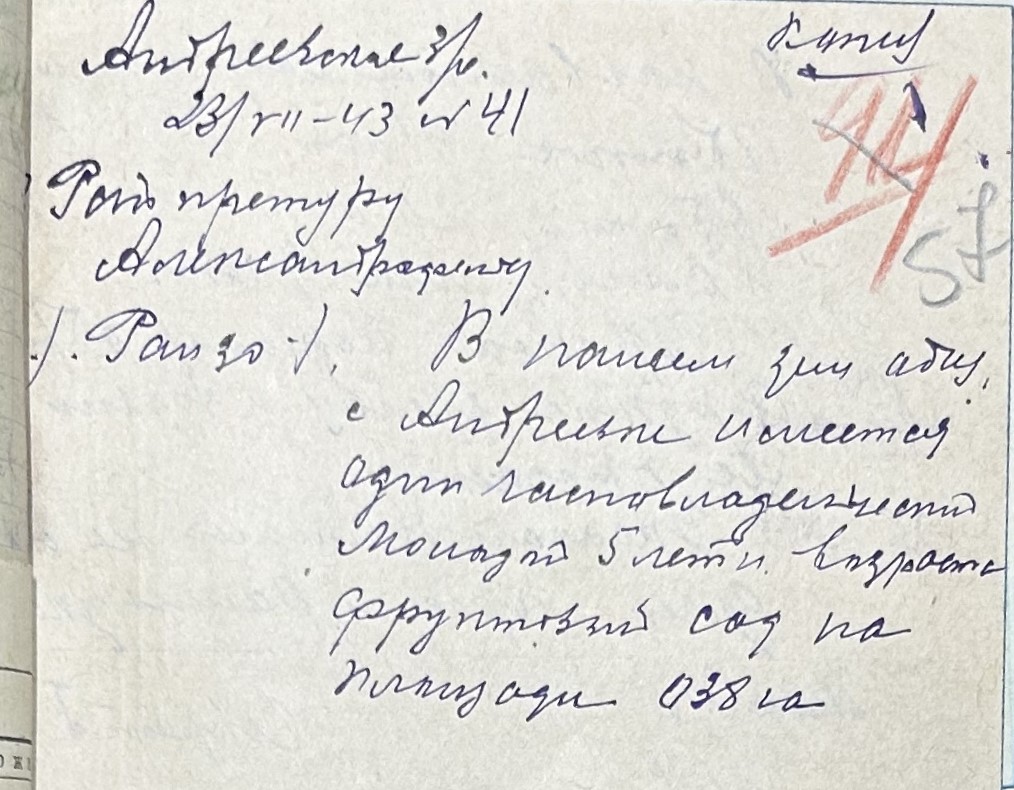 Андреевское з/у.
Копия
23/VII-43 № 41
57
Рай претуру
Александрфельд.
/. Рапзо ./. В нашем зем общ.
с Андреевке имеется
один частновладельческий
молодой 5 летн. возраста
фруктовый сад на
площади 038 га